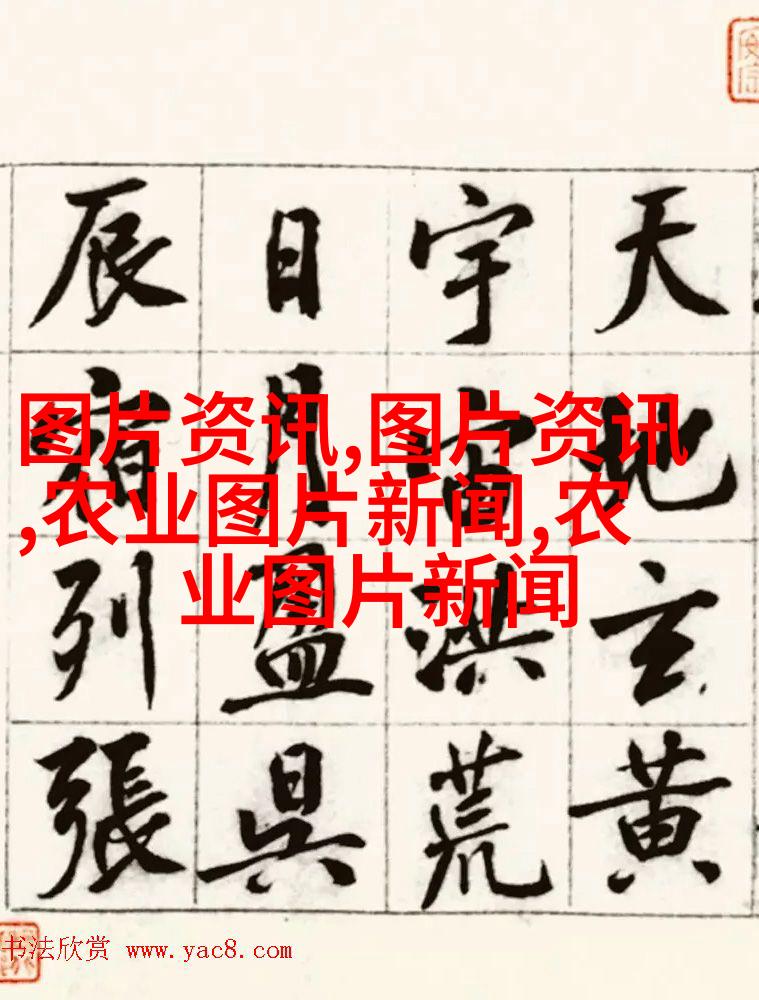 天地玄黄
宇宙洪荒
日月盈昃
辰宿列張
图片资讯,图片资讯
,农业图片新闻,农
业图片新闻
书法欣赏 www.yac8.com